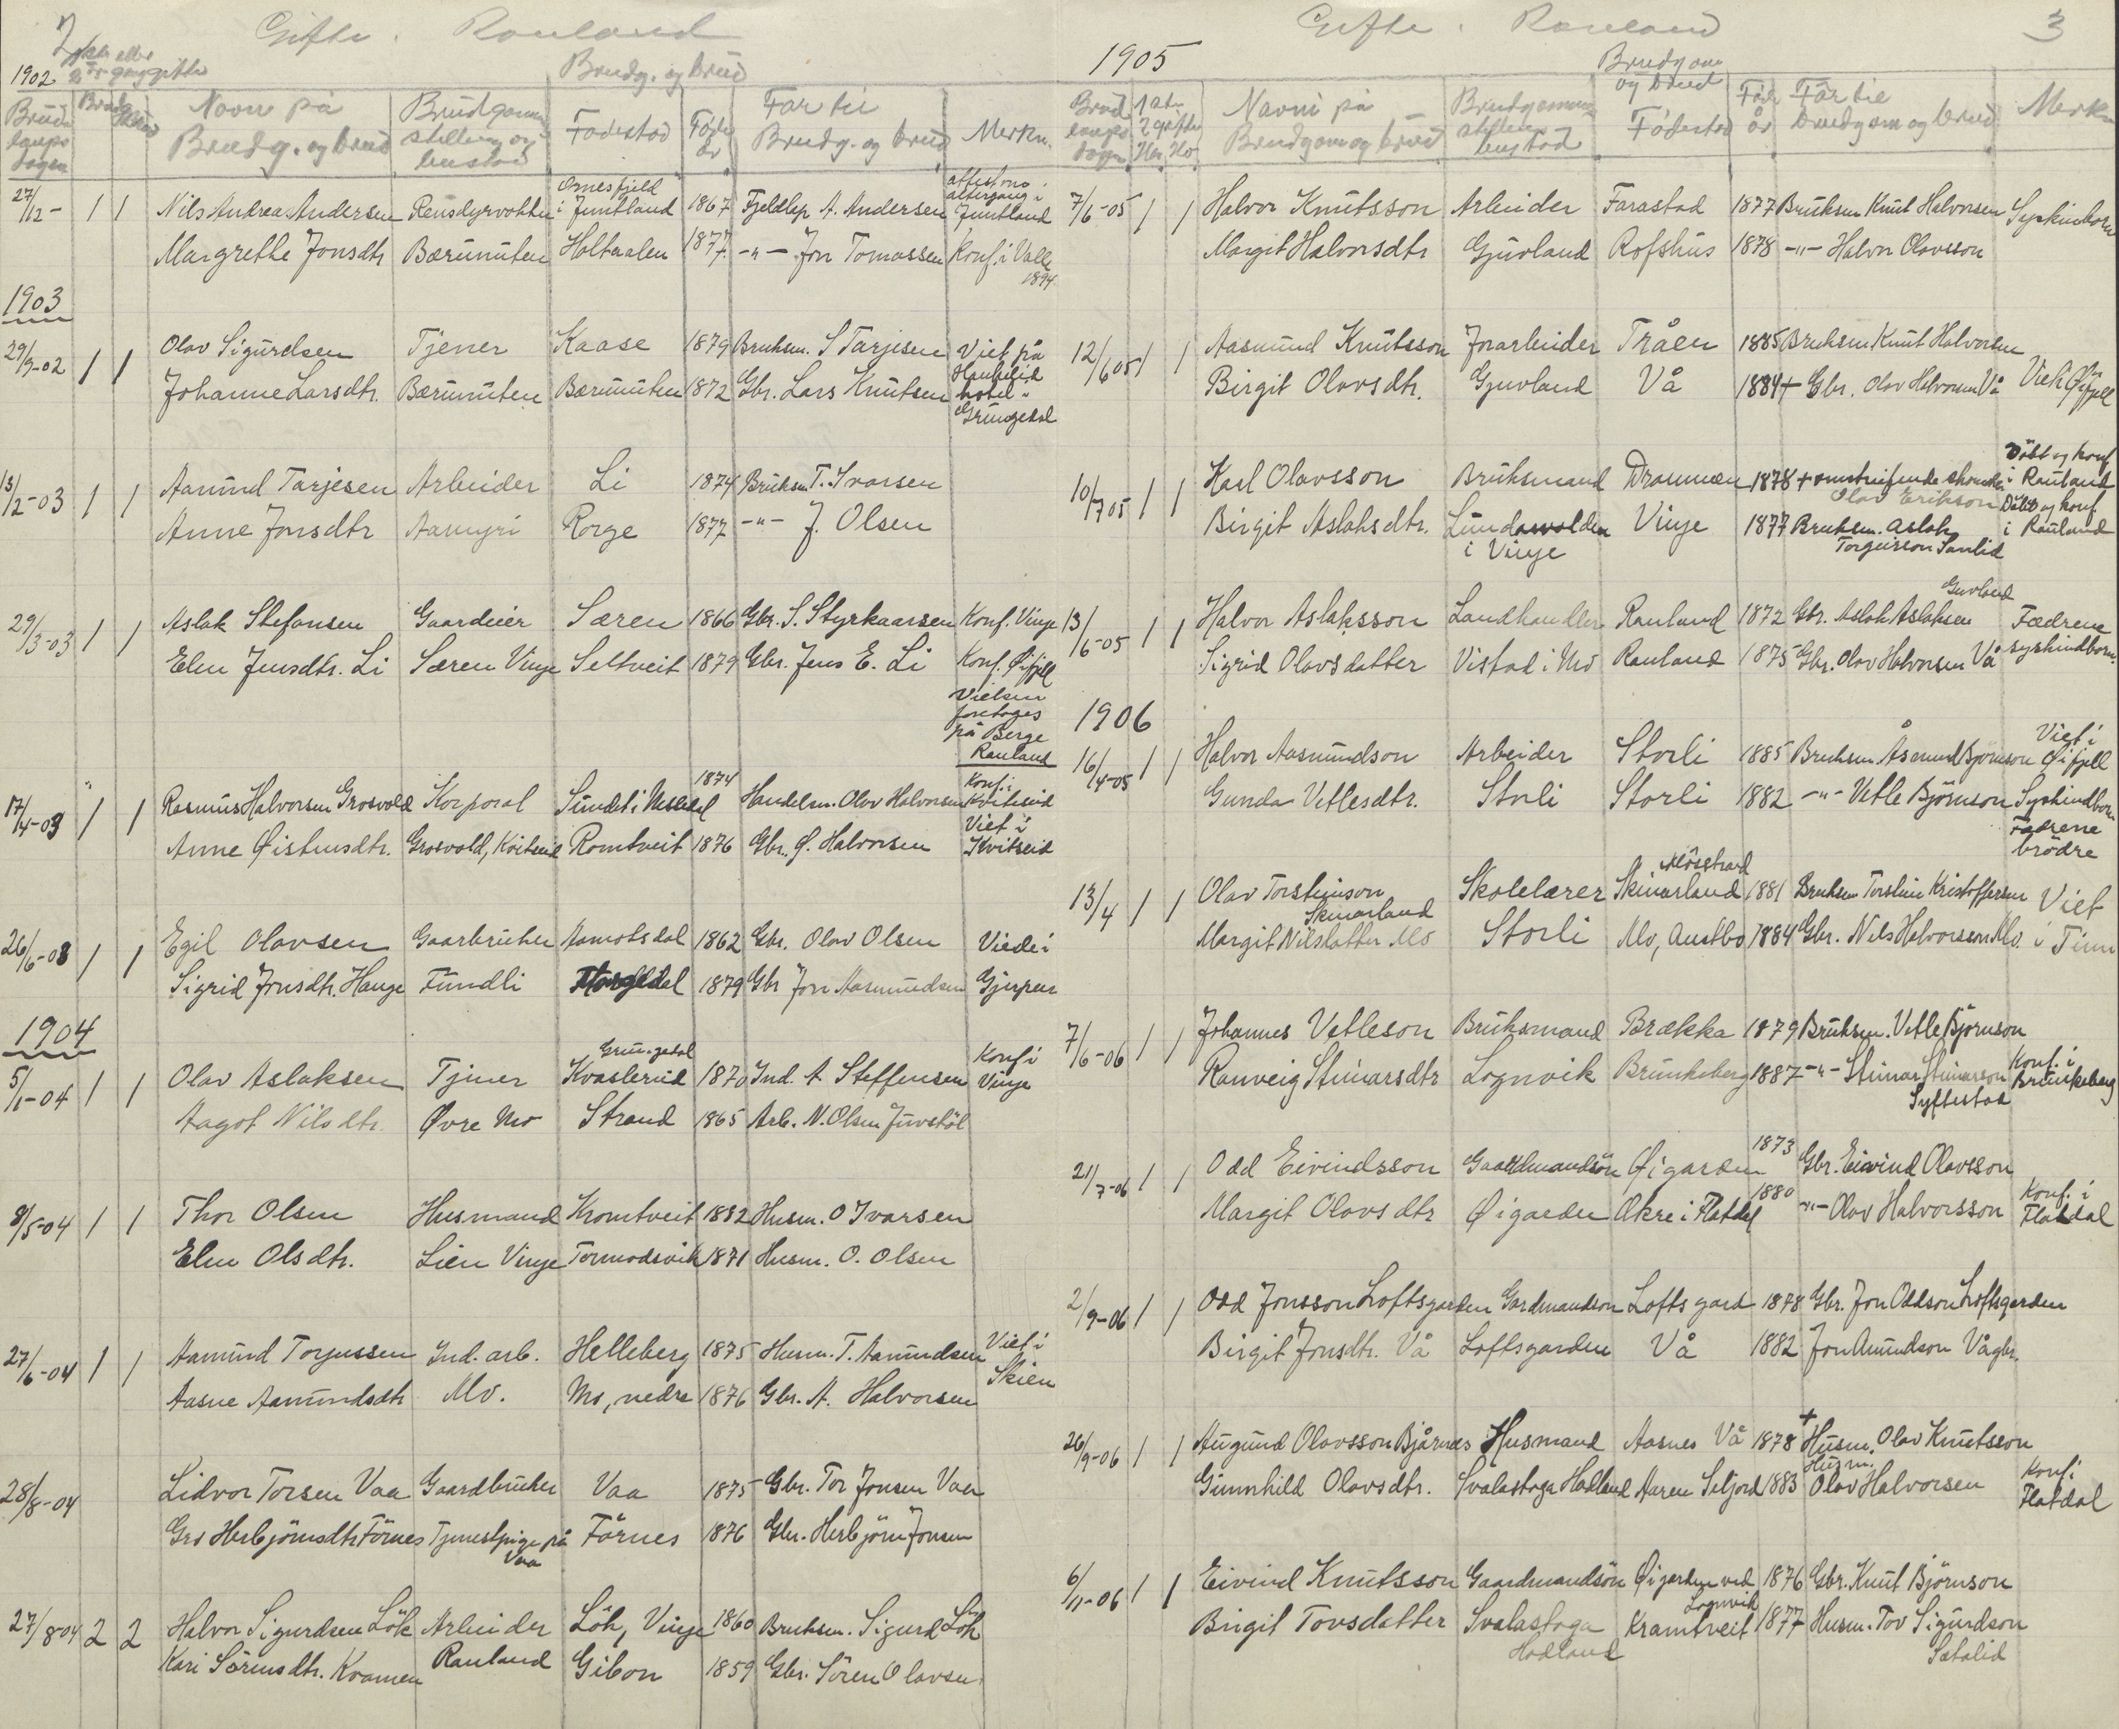 2 Gifte. Rauland
1902
Brudg. og brud
Bryllups dagen
Navn på Brudg. og brud
Brudgommens stilling og bustad
Fødestad
Føde år
Far til Brudg. og brud
Merkn.
27/12 - 1 1 Nils Andrea Andersen Rensdyrvokter Ornesfjeld i Jemtland 1867 Fjeldlap A. Andersen attest om altergang i Jemtland
Margrethe Jonsdtr Bærunuten Holtaalen 1877 -"- Jon Tomassen Konf. i Valle 1894
1903
29/9-02 1 1 Olav Sigurdsen Tjener Kaase 1879 Bruksm. S Tarjesen Viet på Haukelid
Johanne Larsdtr. Bærunuten Bærunuten 1872 Gbr. Lars Knutsen hotel. Grungedal
13/2-03 1 1 Aanund Tarjesen Arbeider Li 1874 Bruksm T. Ivarsen
Anne Jonsdtr Aamyri Rorge 1877 -"- J. Olsen
29/3-03 1 1 Aslak Stefansen Gaardeier Særen 1866 Gbr. S. Styrkaarsen Konf. Vinje
Elen Jensdtr. Li Særen Vinje Seltveit 1879 Gbr. Jens E. Li Konf. Øifjell
Vielsen foretoges på Berge Rauland
17/4-03 1 1 Rasmus Halvorsen Grosvold Korporal Sundet i Nissedal 1874 Handelsm. Olav Halvorsen Konf. i Kviteseid
Anne Øistensdtr. Grosvold, Kvitseid Romtveit 1876 Gbr. Ø. Halvorsen Viet i Kvitseid
26/6-03 1 1 Egil Olavsen Gaarbruker Aamotsdal 1862 Gbr. Olav Olsen Viede i
Sigrid Jonsdtr. Hauge Fundli 1879 Gbr Jon Aasmundsen Gjerpen
1904
5/1-04 1 1 Olav Aslaksen Tjener Grungedal Kvasterud 1870 Ind. A Steffensen Konf i Vinje
Aagot Nilsdtr. Øvre Mo Strand 1865 Arb. N. Olsen Juvstöl
8/5-04 1 1 Thor Olsen Husmand Kromtveit 1882 Husm. O Ivarsen
Elen Olsdtr. Lien Vinje Tormodsvik 1871 Husm. O. Olsen
27/6-04 1 1 Aamund Torjussen Ind. arb. Helleberg 1875 Husm. T. Aamundsen Viet i
Aasne Aamundsdtr Mo. Mo, nedre 1876 Gbr. A. Halvorsen Skien
28/8-04 Lidvor Torsen Vaa Gaardbruker Vaa 1875 Gbr. Tor Jonsen Vaa
Gro Herbjörnsdtr Förnes Tjenestpige på Vaa Förnes 1876 Gbr. Herbjörn Jonsen
27/8-04 2 2 Halvor Sigurdsen Lök Arbeider Lök, Vinje 1860 Bruksm. Sigurd Lök
Kari Sörensdtr. Kvamen Rauland Gibon 1859 Gbr. Sören Olavsen
Gifte. Rauland 3
1905
Brudgom og brud
Navn på Brudgom og brud
Brudgommens stilling bustad
Fødestad
Føde år
Far til brudgom og brud
Merkn
7/6-05 1 1 Halvor Knutsson Arbeider Farastad 1877 Bruksm Knut Halvorsen Syskinborn
Margit Halvorsdtr Gjuvland Rofshus 1878 -"- Halvor Olavsson
12/6 05 1 1 Aasmund Knutsson Jorarbeider Tråen 1885 Bruksm Knut Halvorsen
Birgit Olavsdtr. Gjuvland Vå 1884 + Gbr. Olav Halvorsen Vå Viet på Øifjell
10/7 05 1 1 Karl Olavsson Bruksmand Drammen 1878 + omstreifende Olav Erikson Döbt og konf i Rauland
Birgit Aslaksdtr. Lundevolden i Vinje Vinje 1877 Bruksm. Aslak Torgeirson Sanlid Döbt og konf i Rauland
13/6-05 1 1 Halvor Aslaksson Landhandler Rauland 1872 Gbr. Aslak Aslaksen Guvland Fædrene
Sigrid Olavsdatter Vistad i Mo Rauland 1875 Gbr. Olav Halvorsen Vå syskindborn.
1906
16/4-05 1 1 Halvor Aasmundson Arbeider Storli 1885 Bruksm Åsmund Bjørnson Viet i Øifjell
Gunda Vetlesdtr. Storli Storli 1882 -"- Vetle Björnson Syskindborn Fædrene brødre
13/4 1 1 Olav Torsteinson Skinarland Skolelærer Mösstrand Skinarland 1881 Bruksm Torstein Kristoffersen Viet
Margit Nilsdatter Mo Storli Mo, Austbo 1884 Gbr. Nils Halvorssen Mo i Tinn
7/6-06 1 1 Johannes Vetleson Bruksmand Brækka 1879 Bruksm. Vetle Bjørnson
Ranveig Steinarsdtr Lognvik Brunkeberg 1887 -"- Steinar Steinarson Syftestad Konf. i Brunkeberg
21/7-06 1 1 Odd Eivindsson Gaardmandsön Øigarden 1873 Gbr. Eivind Olavsson
Margit Olavsdtr Øigarden Økre i Flatdal 1880 -"- Olav Halvorsson Konf. i Flatdal
2/9-06 1 1 Odd Jonsson Loftsgarden Gardmandson Loftsgard 1878 Gbr. Jon Oddson Loftsgarden
Birgit Jonsdtr. Vå Loftsgarden Vå 1882 Jon Amundson Vå gbr.
26/9-06 1 1 Augund Olavsson Bjårnes Husmand Aasnes Vå 1878 + Husm. Olav Knutsson
Gunnhild Olavsdtr. Svalastoga Hadland Aaren Seljord 1883 Husm. Olav Halvorsen Konf. Flatdal
6/11-06 1 1 Eivind Knutsson Gaardmandsön Øigarden ved Lognvik 1876 Gbr. Knut Björnson
Birgit Tovsdatter Svalastoga Hadland Kramtveit 1877 Husm. Tov Sigurdson Sætalid